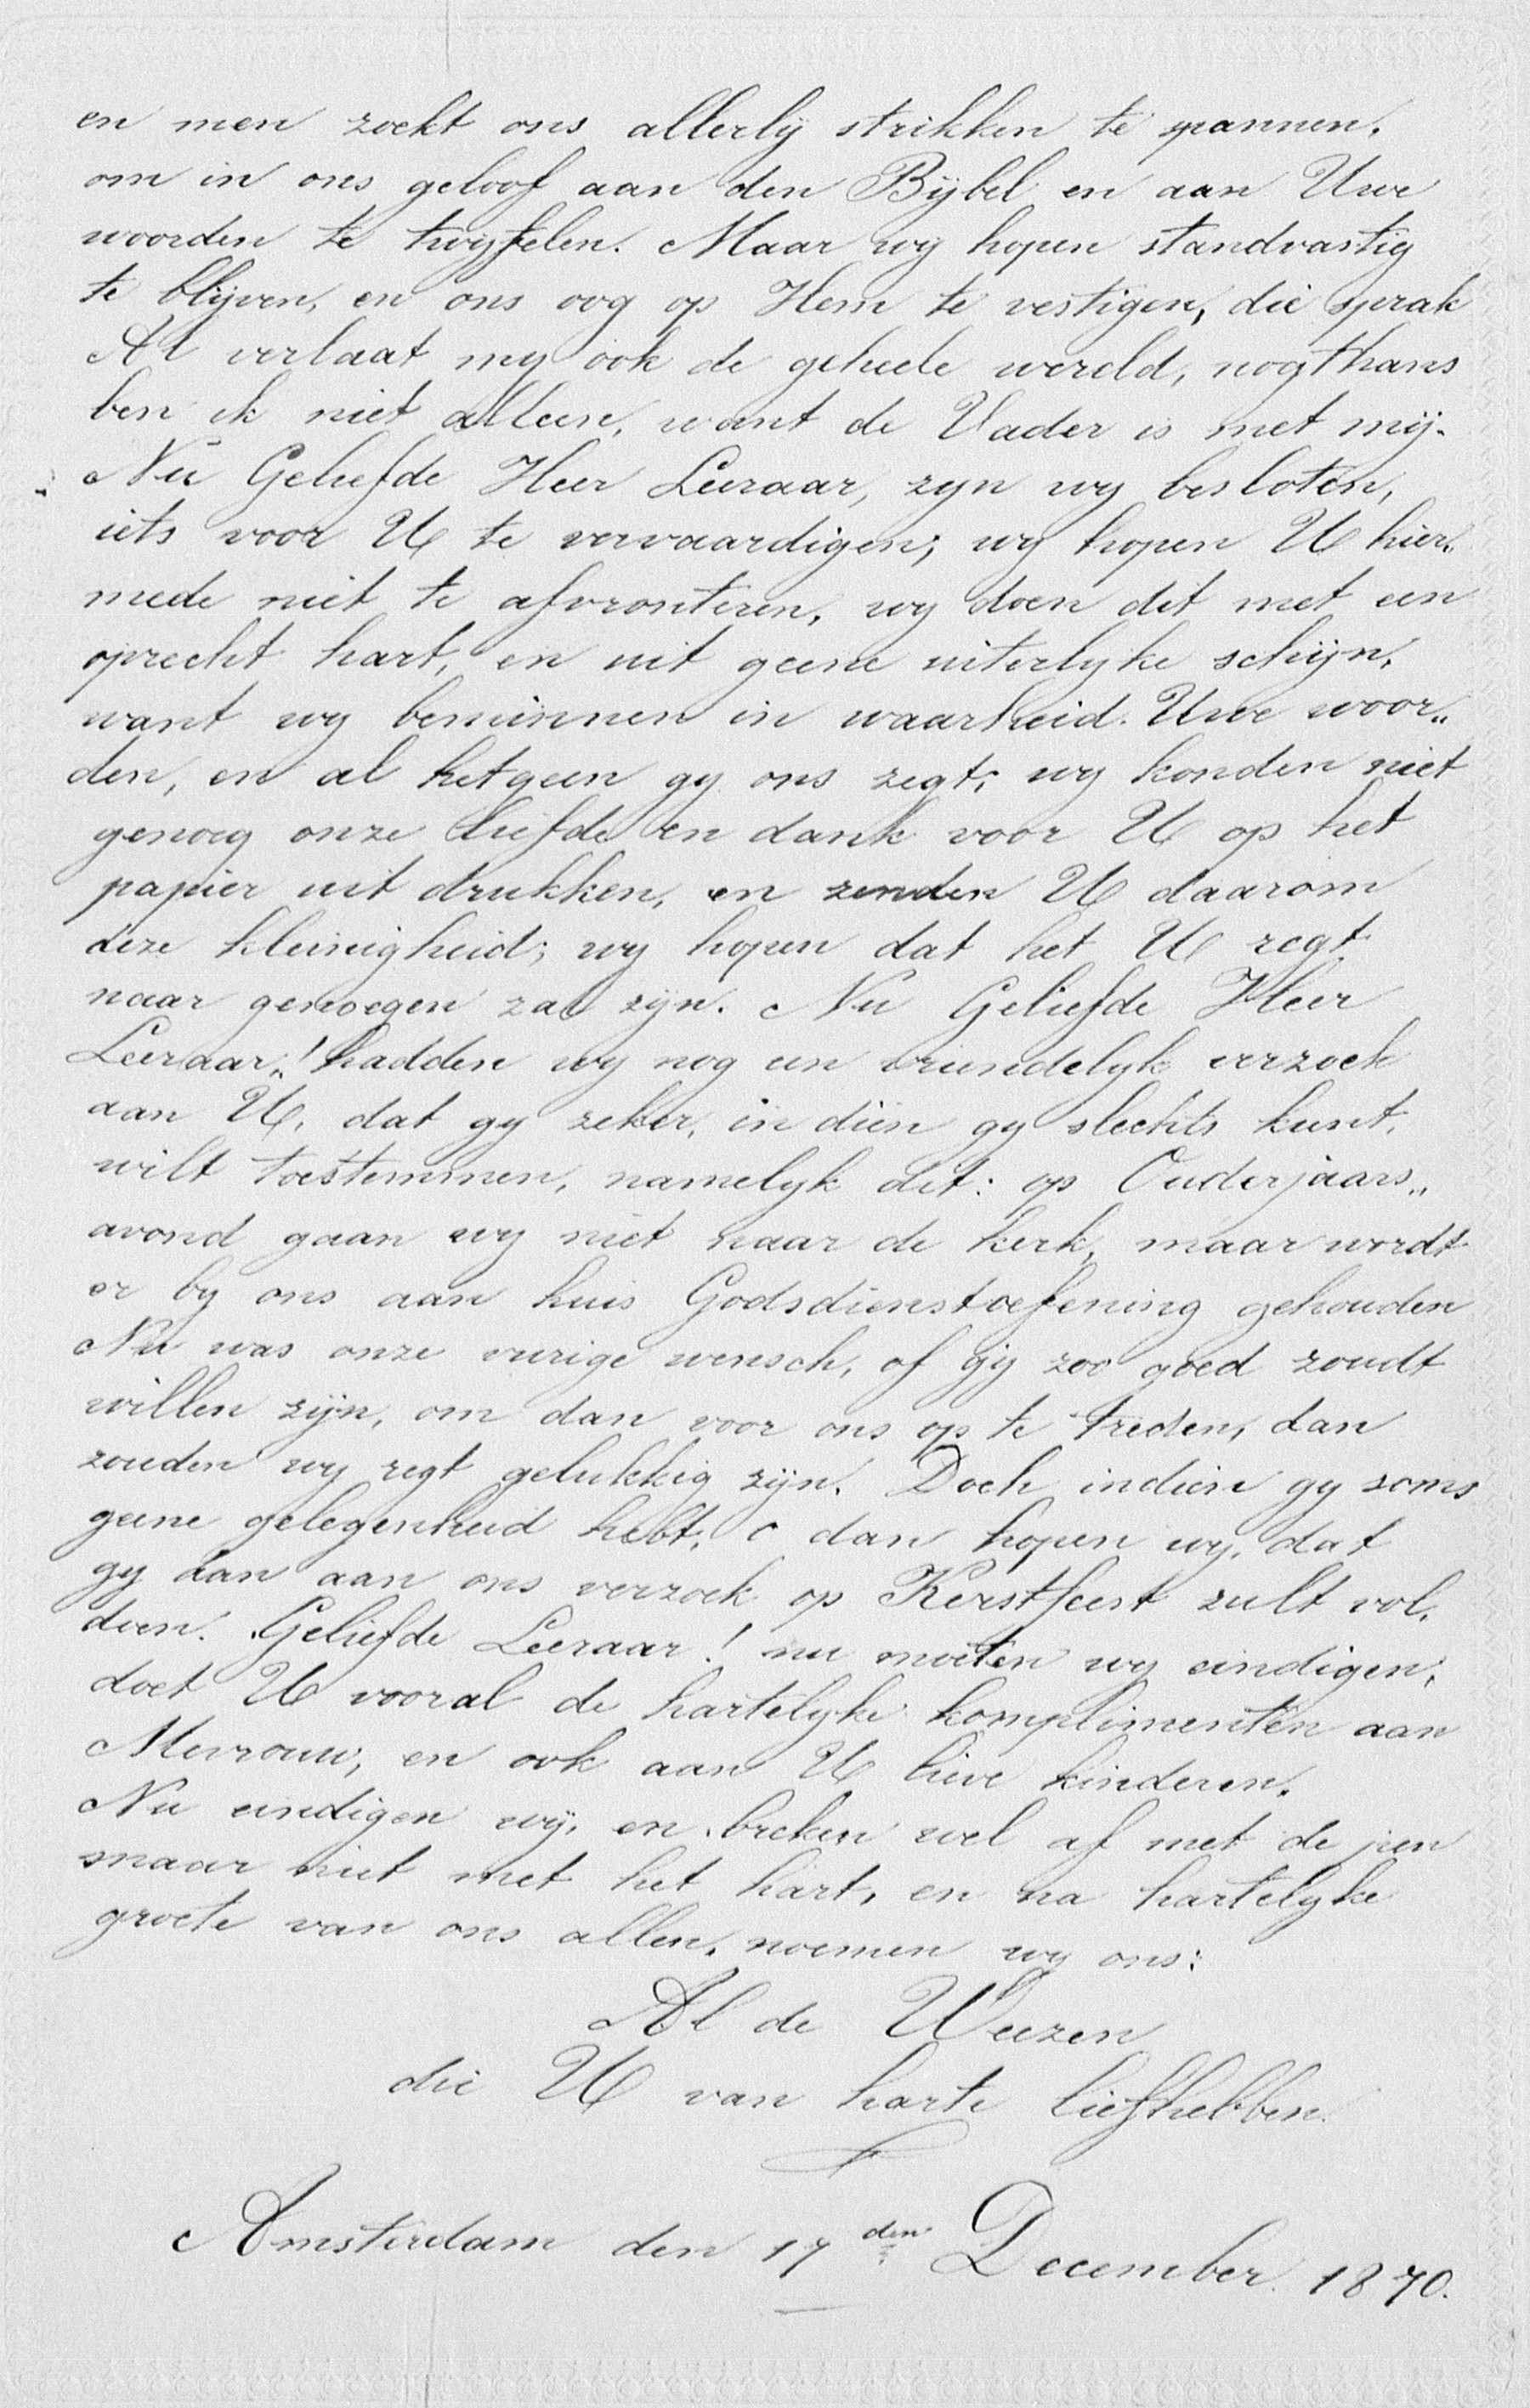 en men zoekt ons allerlij strikken te spannen,
om in ons geloof aan den Bijbel en aan Uwe
woorden te twyfelen. Maar wy hopen standvastig
te blijven, en ons oog op Hem te vestigen, die sprak
Al verlaat my ook de geheele wereld, nogthans
ben ik niet alleen, want de Vader is met mij.
Nu Geliefde Heer Leeraar, zyn wy besloten,
iets voor U te vervaardigen; wy hopen U hier„
mede niet te afvronteren, wy doen dit met een
oprecht hart, en uit geene uiterlyke schijn,
want wy beminnen in waarheid Uwe woor„
den, en al hetgeen gy ons zegt; wy konden niet
genoeg onze liefde en dank voor U op het
papier uit drukken, en zenden U daarom
deze kleinigheid; wy hopen dat het U regt
naar genoegen zal zyn. Nu Geliefde Heer
Leeraar„! hadden wy nog een vriendelyk verzoek
aan U, dat gy zeker, in dien gy slechts kunt,
wilt toestemmen, namelyk dit: op Ouderjaars„
avond gaan wy niet naar de kerk, maar wordt
er by ons aan huis Godsdienstoefening gehouden
Nu was onze vurige wensch, of gij zoo goed zoudt
willen zijn, om dan voor ons op te treden, dan
zouden wy regt gelukkig zijn. Doch indien gy soms
geene gelegenheid hebt, o dan hopen wy, dat
gy dan aan ons verzoek op Kerstfeest zult vol,
doen. Geliefde Leeraar! nu moeten wy eindigen,
doet U vooral de hartelyke komplimenten aan
Mevrouw, en ook aan U lieve kinderen.
Nu eindigen wij, en breken wel af met de pen
maar niet met het hart, en na hartelyke
groete van ons allen, noemen wy ons:
Al de Weezen
die U van harte liefhebben.
Amsterdam den 17den December 1870.